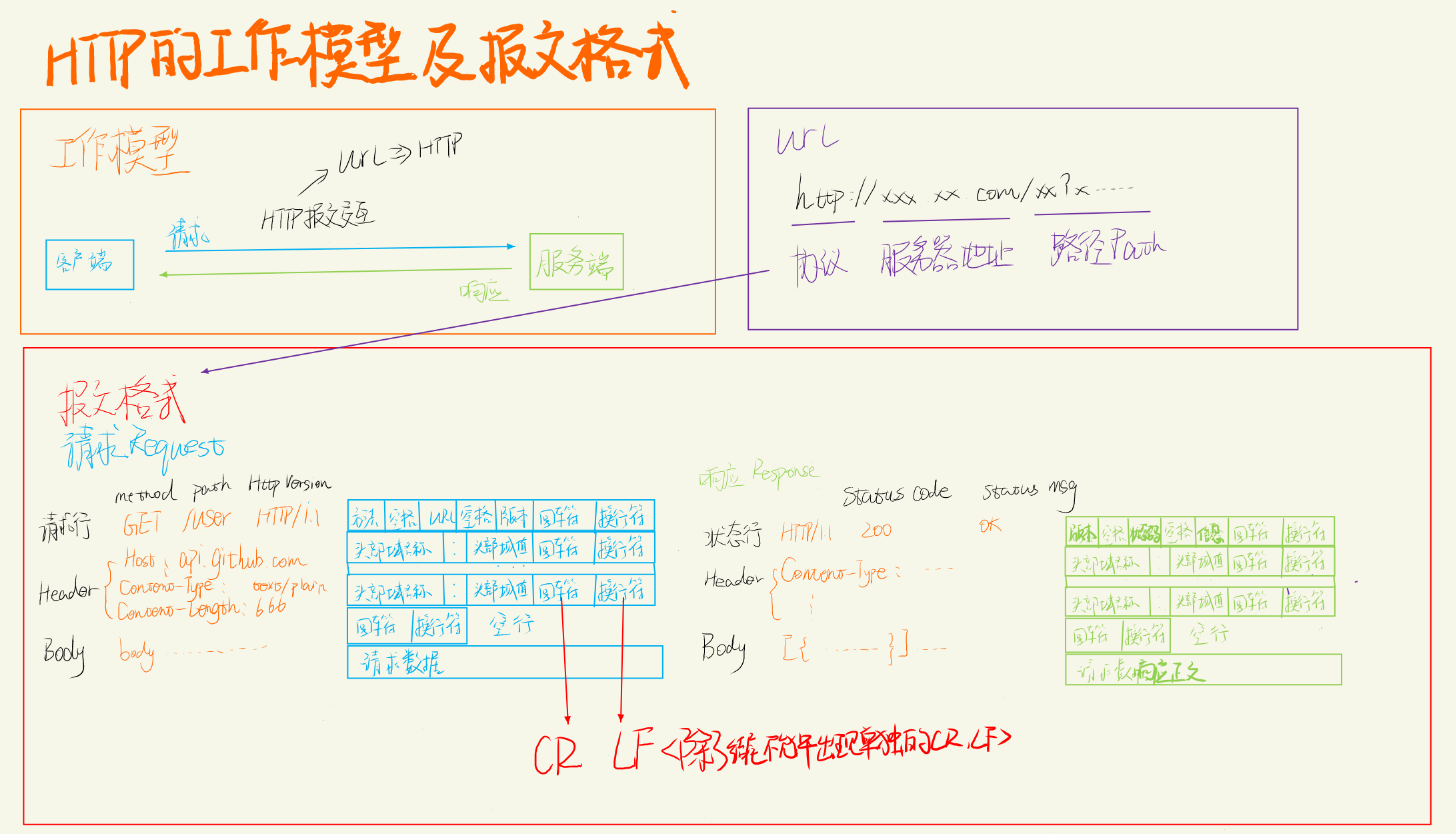 HTTP的工作模型及报文格式
工作模型
URL => HTTP
HTTP报文交互
请求
客户端
服务端
响应
URL
http://xxx xx com/xx?x……
协议 服务器地址 路径Path
报文格式
请求Request
method path Http Version
请求行 GET /user HTTP/1.1
Header
Host: api.github.com
Content-Type: text/plain
Content-Length: 666
Body body …………
方法 空格 URL 空格 版本 回车符 换行符
头部域名称 : 头部域值 回车符 换行符
...
头部域名称 : 头部域值 回车符 换行符
回车符 换行符 空行
请求数据
响应 Response
Status code Status msg
状态行 HTTP/1.1 200 OK
Header Content-Type: ……
Body [{ …… }] …
版本 空格 状态码 空格 信息 回车符 换行符
头部域名称 头部域值 回车符 换行符
头部域名称 : 头部域值 回车符 换行符
回车符 换行符 空行
响应正文
CR LF
单独的CR,LF>